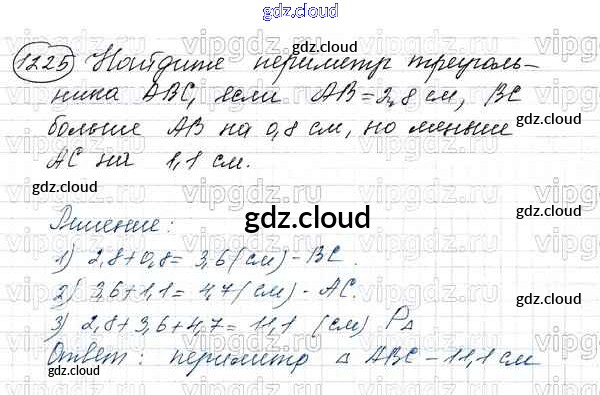 gdz.cloud
1225 Найдите периметр треуголь-
ника ABC, если AB = 2,8 см, BC
больше AB на 0,8 см, но меньше
AC на 1,1 см.
Решение:
gdz.cloud
1) 2,8 + 0,8 = 3,6 (см) - BC.
2) 3,6 + 1,1 = 4,7 (см) - AC.
3) 2,8 + 3,6 + 4,7 = 11,1 (см) P△
Ответ: периметр △ ABC - 11,1 см